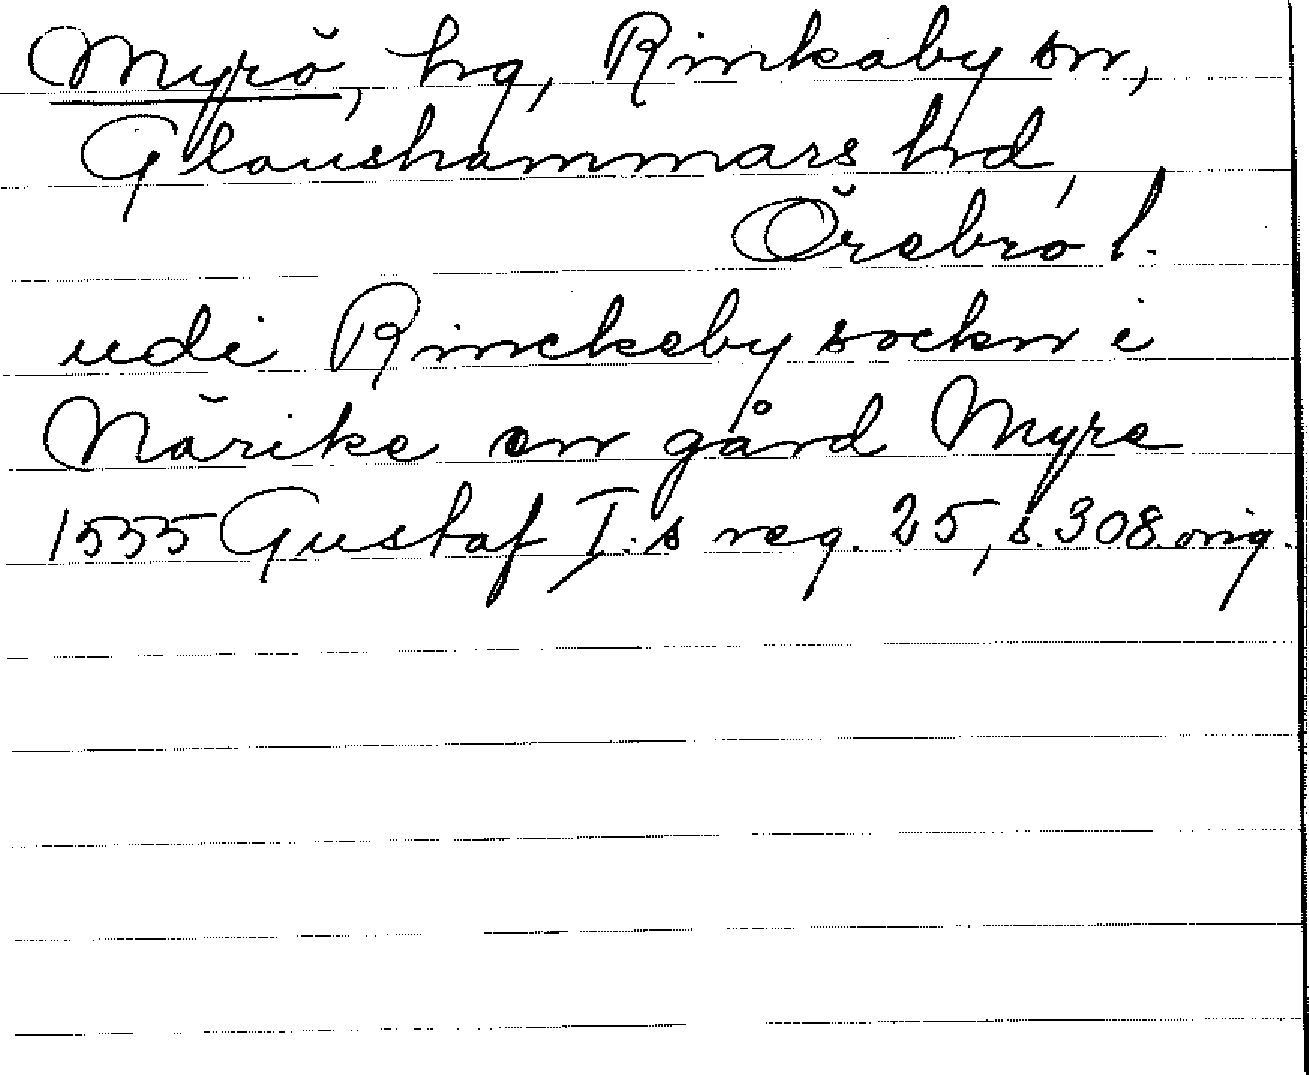 Myrö, hg, Rinkaby sn,
Glanshammars hrd,
Örebro l.
udi Rinckeby sockn i
Närike en gård Myre
1555 Gustaf I:s reg. 25, s. 308. orig.